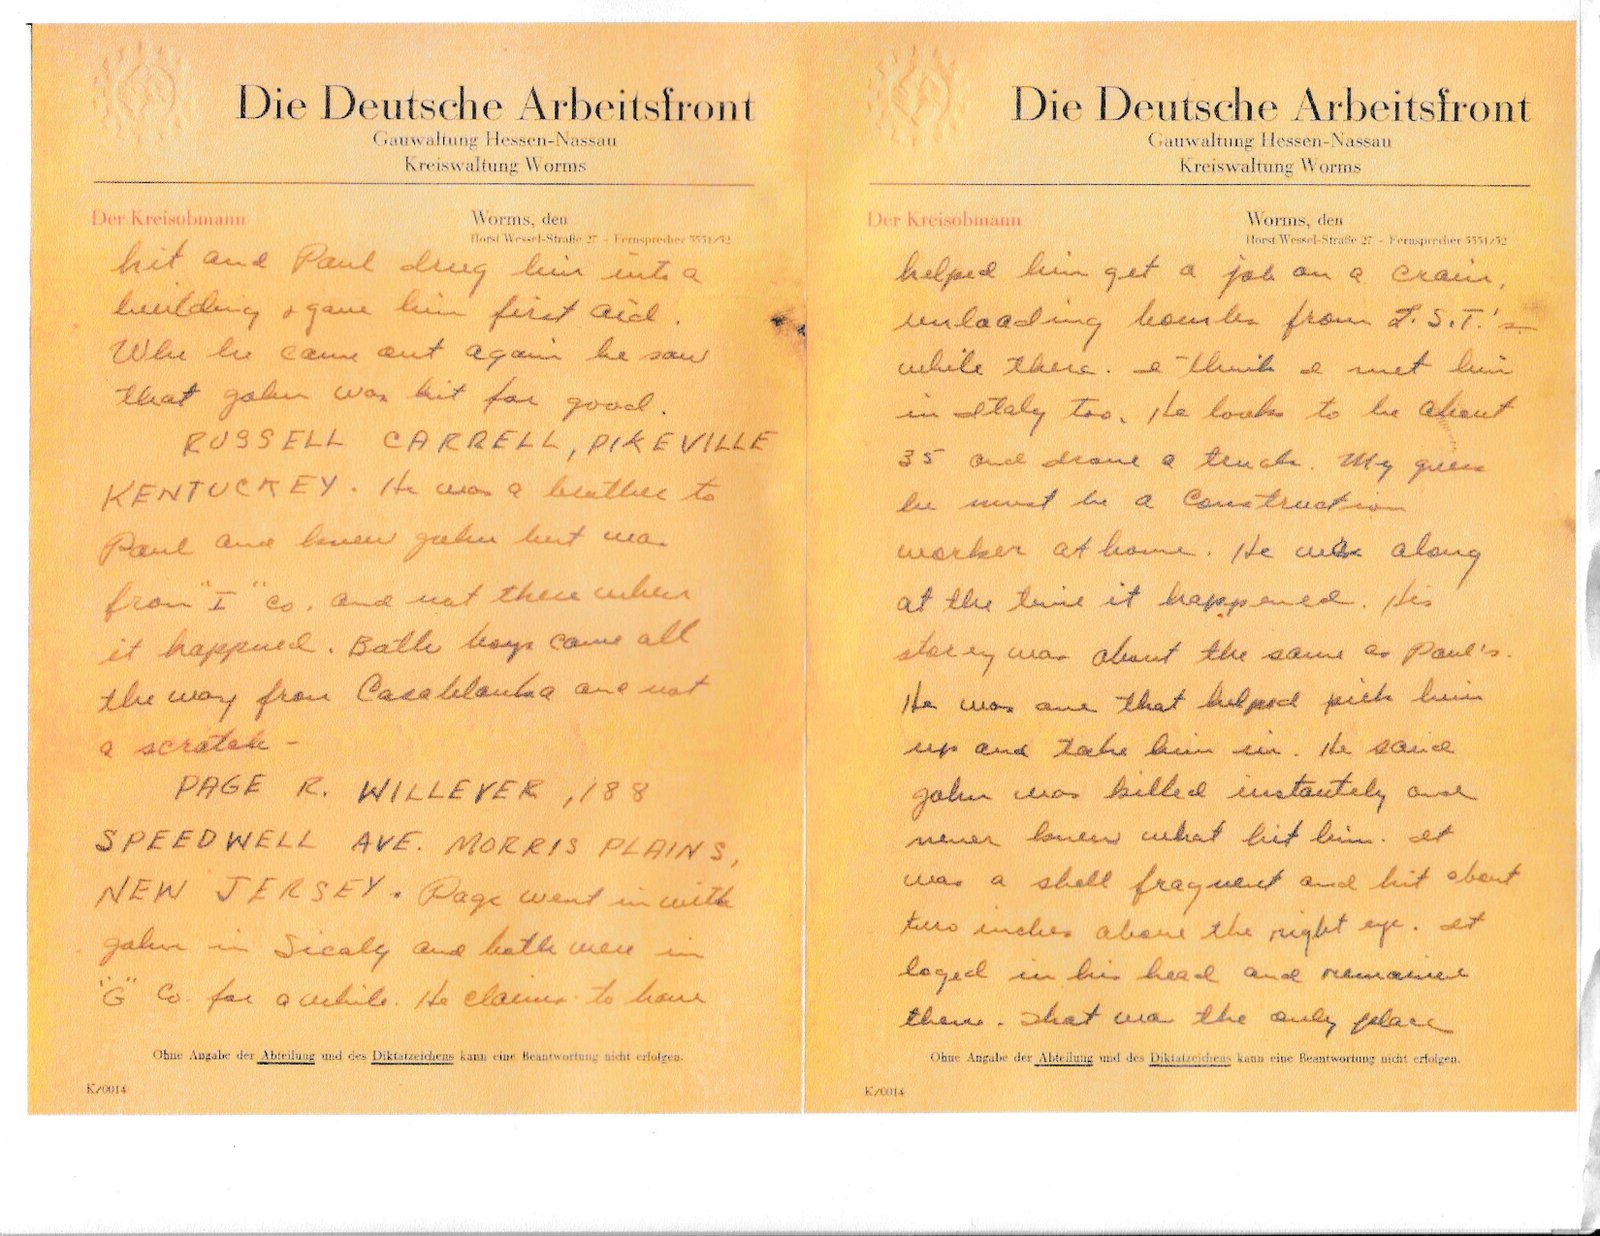 Die Deutsche Arbeitsfront
Gauwaltung Hessen-Nassau
Kreiswaltung Worms
Der Kreisobmann
Worms, den
Horst Wessel-Straße 27 - Fernsprecher 5551/52
hit and Paul drug him into a
building & gave him first aid.
Whe he came out again he saw
that John was hit for good.
RUSSELL CARRELL, PIKEVILLE
KENTUCKEY. He was a brother to
Paul and knew John but was
from "I" Co. and not there when
it happned. Both boys came all
the way from Casablanka and not
a scratch -
PAGE R. WILLEVER, 188
SPEEDWELL AVE. MORRIS PLAINS,
NEW JERSEY. Page went in with
John in Sicaly and both were in
"G" Co. for awhile. He claims to have
Ohne Angabe der Abteilung und des Diktatzeichens kann eine Beantwortung nicht erfolgen.
K/0014
Die Deutsche Arbeitsfront
Gauwaltung Hessen-Nassau
Kreiswaltung Worms
Der Kreisobmann
Worms, den
Horst Wessel-Straße 27 - Fernsprecher 5551/52
helped him get a job on a crain,
unloading bombs from L.S.T.'s
while there. I think I met him
in Italy too. He looks to be about
35 and drove a truck. My guess
he must be a construction
worker at home. He was along
at the time it happened. His
storey was about the same as Paul's.
He was one that helped pick him
up and take him in. He said
John was killed instantely and
never knew what hit him. It
was a shell fragment and hit about
two inches above the right eye. It
loged in his head and remained
there. That was the only place
Ohne Angabe der Abteilung und des Diktatzeichens kann eine Beantwortung nicht erfolgen.
K/0014